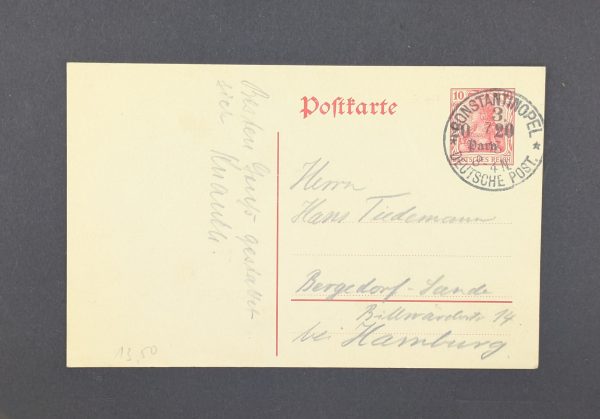 Besten Gruß gestattet
sich Knauth.
Postkarte
10
20 20
Para
DEUTSCHES REICH
* CONSTANTINOPEL *
3.
7
3-4 N.
DEUTSCHE POST.
Herrn
Hans Tiedemann
Bergedorf-Sande
Billwärderstr 14
bei Hamburg
13,50